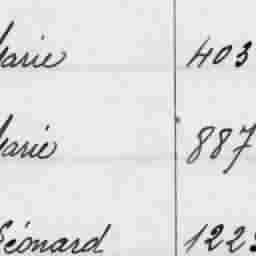 Marie 403
Marie 887
Léonard 122